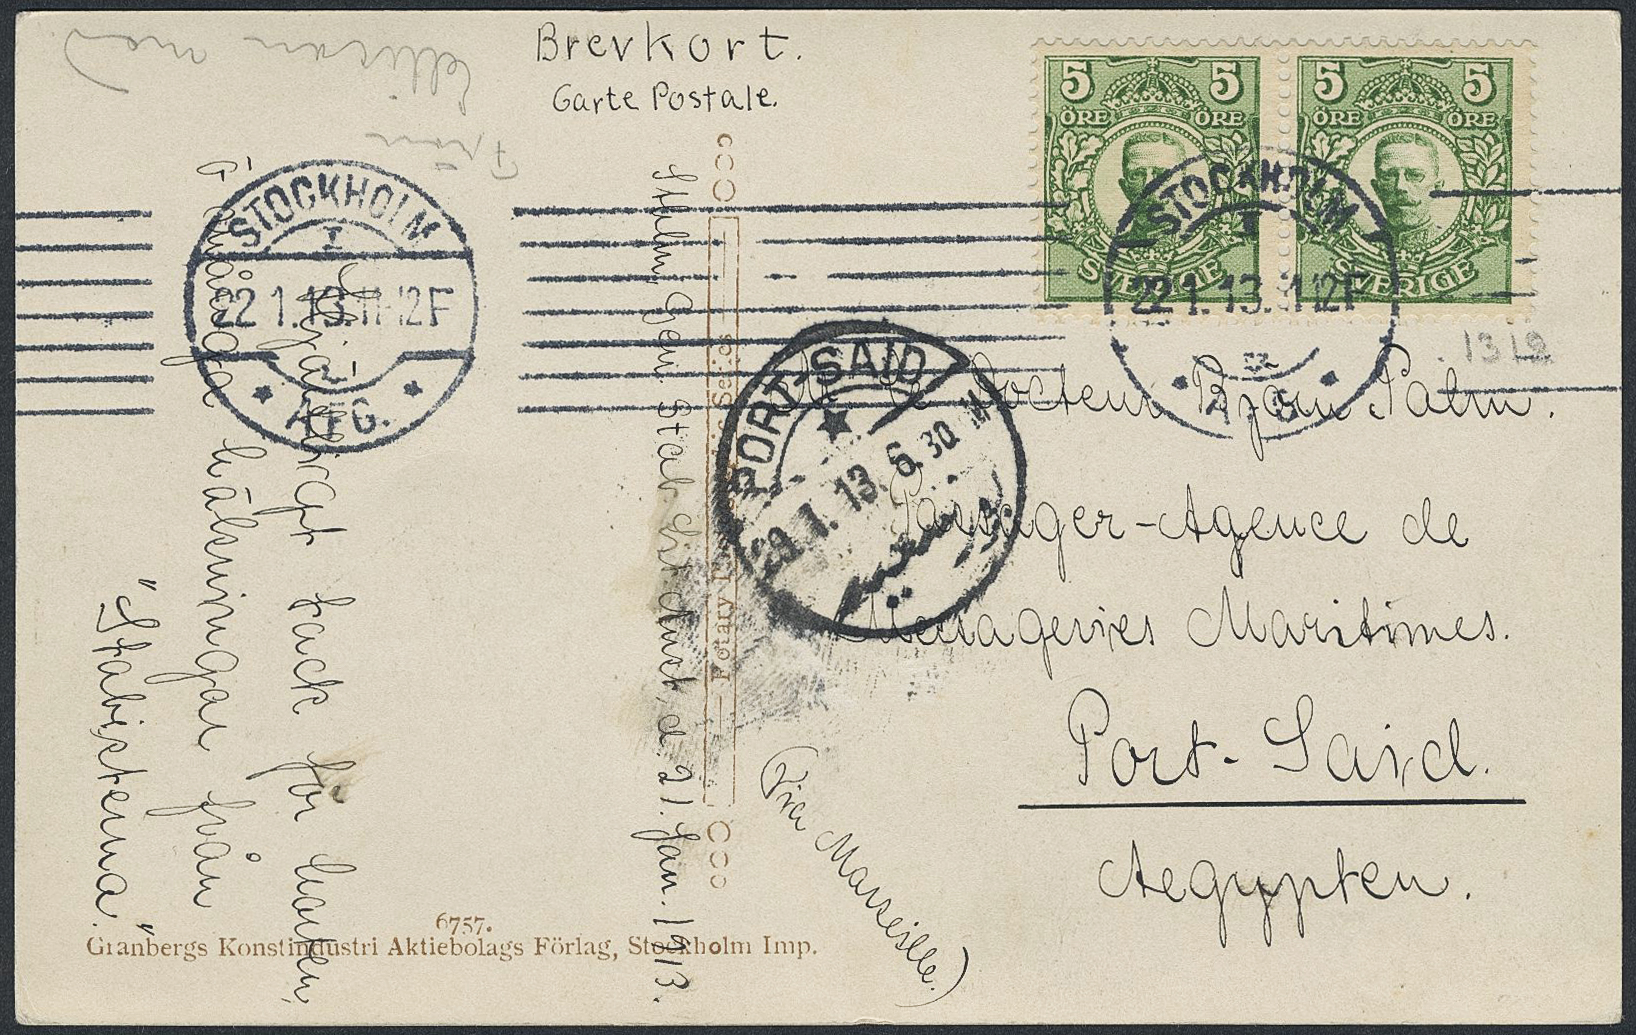 Brevkort.
Carte Postale.
5 5
ÖRE ÖRE
SVERIGE
5 5
ÖRE ÖRE
SVERIGE
STOCKHOLM
1
22.1.13.11-12F
AFG.
STOCKHOLM
1
22.1.13.11-12F
PORT-SAID
29.1.13.6.30 M
1312
Docteur Björn Palm.
Passager-Agence de
Messageries Maritimes.
Port-Said.
Aegypten.
(Via Marseille.)
Sthlm, Gen. Stab. d. 21. Jan. 1913.
Hjärtligt tack för korten,
många hälsningar från
"Stabisterna."
Från
med
Rotary
Series
6757.
Granbergs Konstindustri Aktiebolags Förlag, Stockholm Imp.